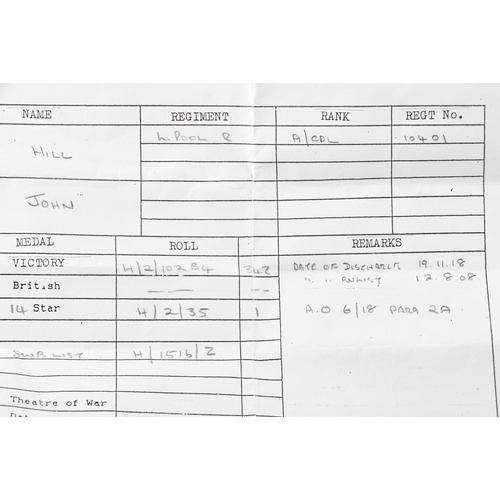 NAME REGIMENT RANK REGT No.
HILL L'POOL R A/CPL 10401
JOHN
MEDAL ROLL REMARKS
VICTORY H/2/102 B4 342 DATE OF DISCHARGE 19.11.18
British — — " " ENLIST 12.8.08
14 Star H/2/35 1 A.O 6/18 PARA 2A
SWB LIST H/1516/2
Theatre of War